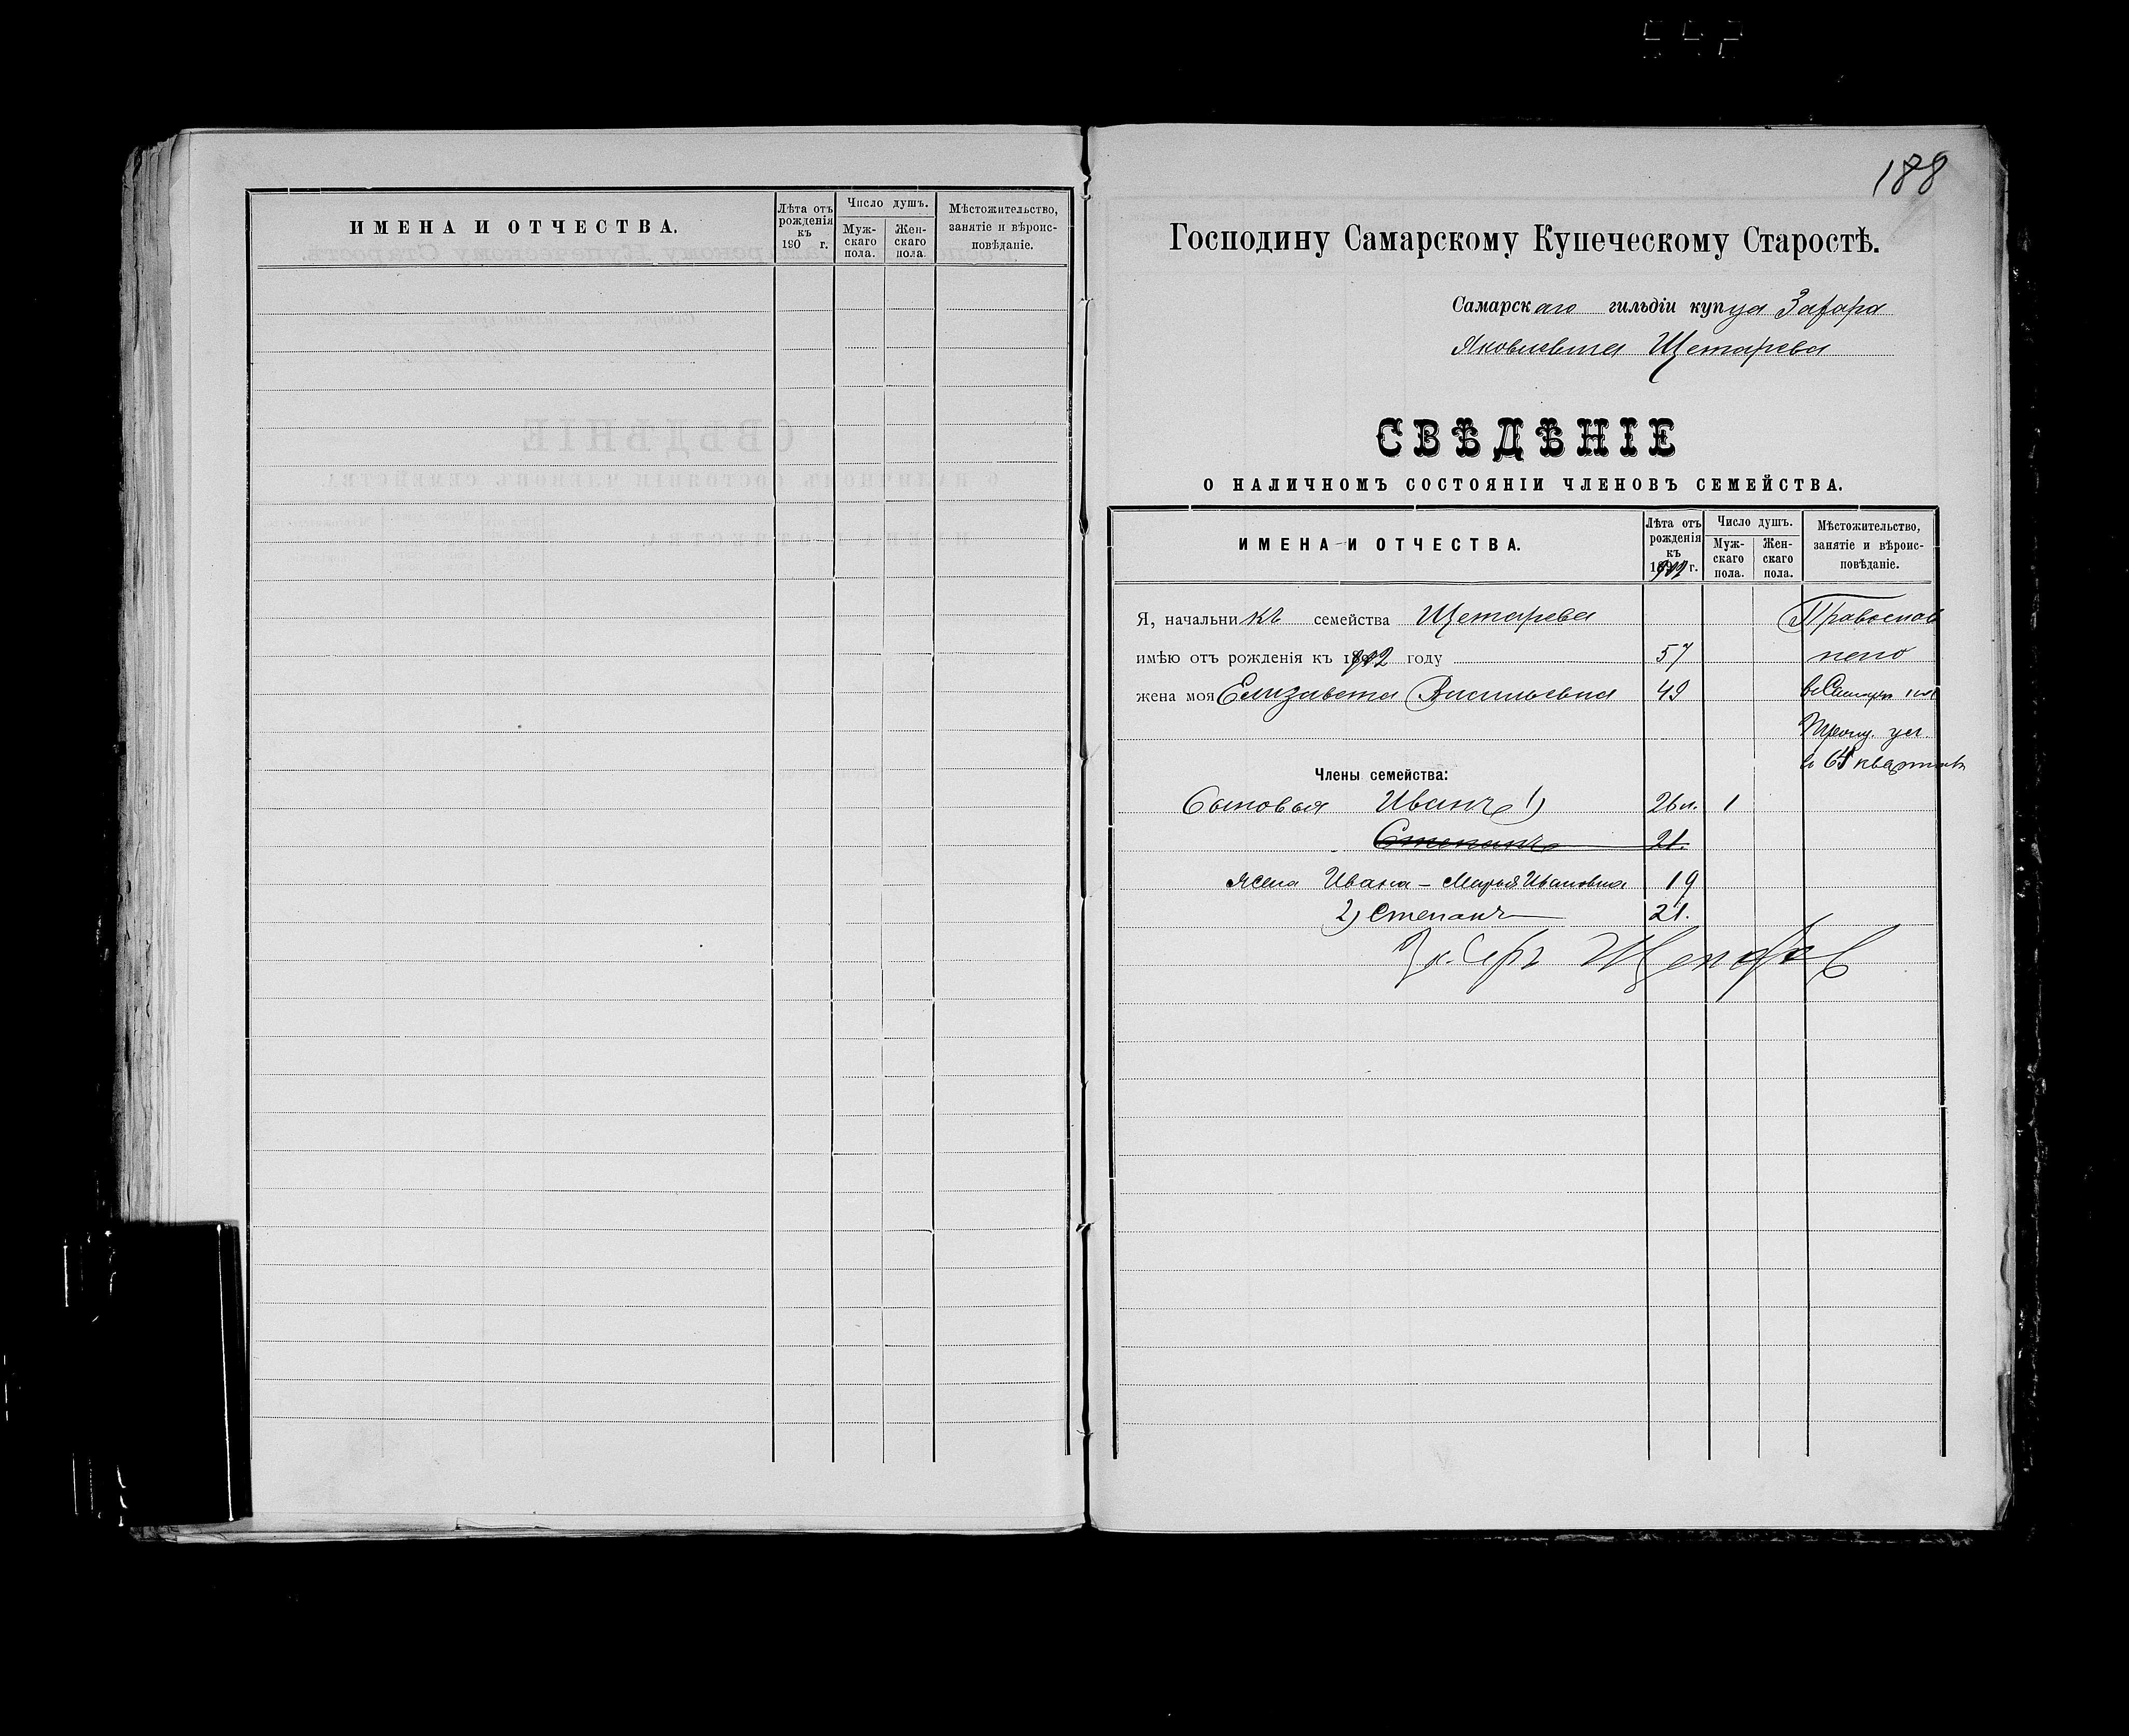 ИМЕНА И ОТЧЕСТВА.
Лѣта отъ рожденія къ 190 г.
Число душъ.
Мужскаго пола.
Женскаго пола.
Мѣстожительство, занятіе и вѣроисповѣданіе.
188
Господину Самарскому Купеческому Старостѣ.
Самарскаго гильдіи купца Захара
Яковлевича Щетарева
СВѢДѢНІЕ
О НАЛИЧНОМЪ СОСТОЯНІИ ЧЛЕНОВЪ СЕМЕЙСТВА.
ИМЕНА И ОТЧЕСТВА.
Лѣта отъ рожденія къ 1912 г.
Число душъ.
Мужскаго пола.
Женскаго пола.
Мѣстожительство, занятіе и вѣроисповѣданіе.
Я, начальникъ семейства Щетарева Православ
имѣю отъ рожденія къ 1912 году 57
жена моя Елизавета Васильевна 49
ул.
в 64 кварталѣ
Члены семейства:
Сыновья Иванъ 1) 26 л. 1
Степанъ 21.
жена Ивана - Марья Ивановна 19
2) Степанъ 21.
Захаръ Щетарев